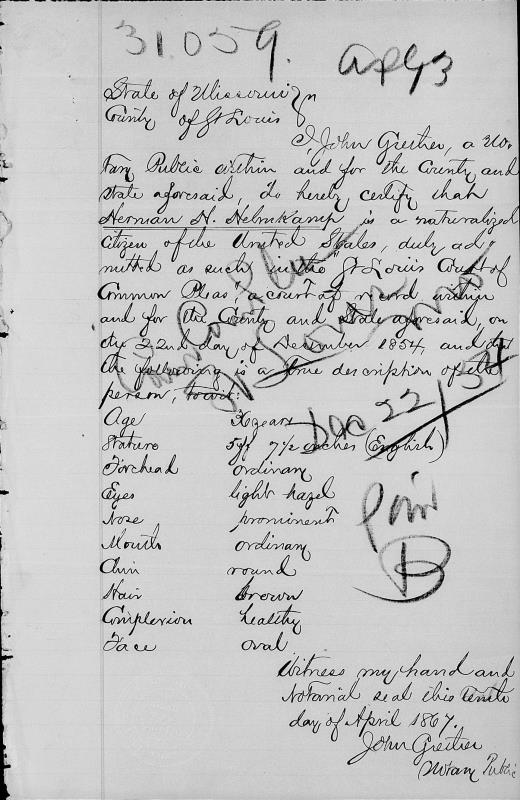 31.059.
Apl 3
State of Missouri
County of St Louis
I, John Greitier, a No-
tary Public within and for the County and
State aforesaid, do hereby certify that
Herman H. Helmkamp is a naturalized
Citizen of the United States, duly ad-
mitted as such in the "St Louis Court of
Common Pleas", a court of record within
and for the County and State aforesaid, on
the 22nd day of December 1854, and that
the following is a true description of
person, towit:
Age 36 years
Stature 5 ft 7 1/2 inches (English)
Forehead ordinary
Eyes light hazel
Nose prominent
Mouth ordinary
Chin round
Hair brown
Complexion healthy
Face oval
Common Pleas
St Louis
Dec 22/54
B
Witness my hand and
Notarial seal this tenth
day of April 1867.
John Greitier
Notary Public